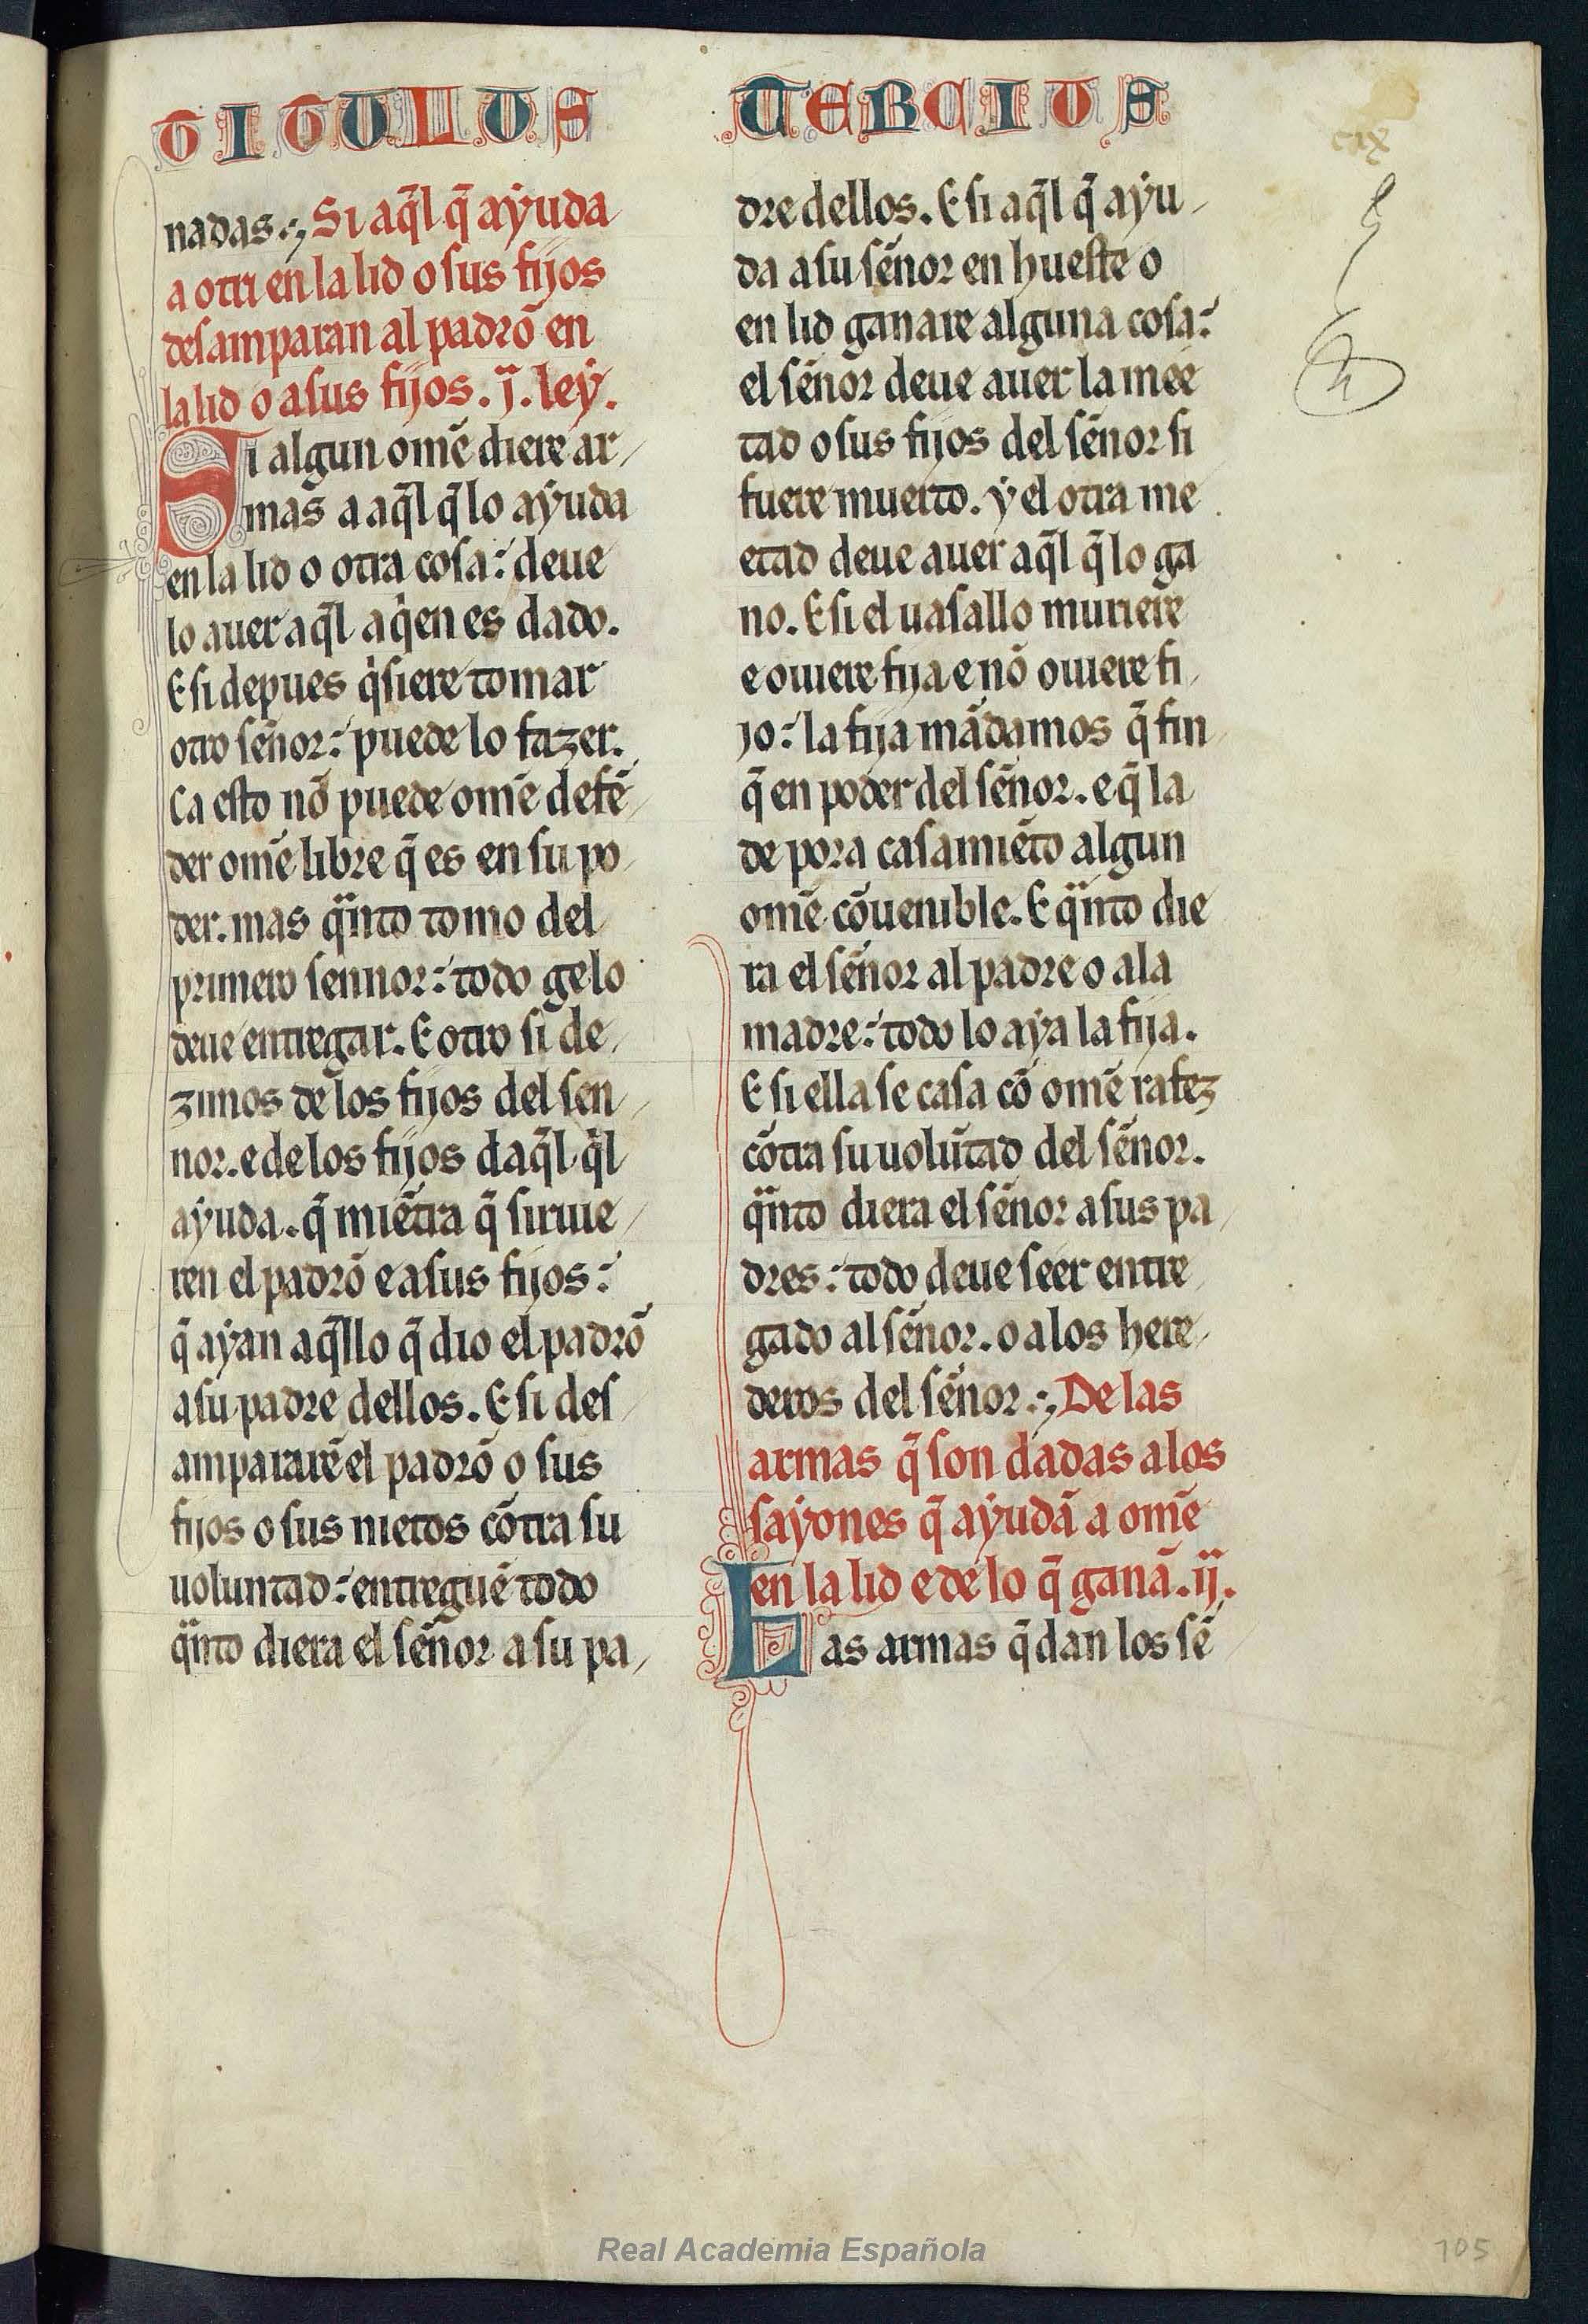 TITULUS TERCIUS
cix
nadas.;, Si aq̃l q̃ ayuda
a otri en la lid o sus fijos
desamparan al padrõ en
la lid o a sus fijos. j. ley.
Si algun omẽ diere ar/
mas a aq̃l q̃ lo ayuda
en la lid o otra cosa: deue
lo auer aq̃l a qien es dado.
E si depues qisiere tomar
otro sẽnor: puede lo fazer.
Ca esto nõ puede omẽ defẽ/
der omẽ libre q̃ es en su po/
der. mas qnto tomo del
primero sennor: todo gelo
deue entregar. E otro si de/
zimos de los fijos del sen/
nor. e de los fijos daq̃l q̃l
ayuda. q̃ miẽtra q̃ siruie/
ren el padrõ e a sus fijos:
q̃ ayan aq̃llo q̃ dio el padrõ
a su padre dellos. E si des/
ampararẽ el padrõ o sus
fijos o sus nietos cõtra su
uoluntad: entreguẽ todo
qnto diera el sẽnor a su pa/
dre dellos. E si aq̃l q̃ ayu/
da a su sẽnor en hueste o
en lid ganare alguna cosa:
el sẽnor deue auer la mee
tad o sus fijos del sẽnor si
fuere muerto. y el otra me
etad deue auer aq̃l q̃ lo ga
no. E si el uasallo muriere
e ouiere fija e nõ ouiere fi/
jo: la fija mãdamos q̃ fin/
q̃ en poder del sẽnor. e q̃ la
de pora casamiẽto algun
omẽ cõuenible. E qnto die
ra el sẽnor al padre o a la
madre: todo lo aya la fija.
E si ella se casa cõ omẽ rafez
cõtra su uolũtad del sẽnor.
qnto diera el sẽnor a sus pa/
dres: todo deue seer entre/
gado al sẽnor. o a los here/
deros del sẽnor.;, De las
armas q̃ son dadas a los
sayones q̃ ayudã a omẽ
en la lid e de lo q̃ ganã. ij.
Las armas q̃ dan los sẽ
Real Academia Española
105